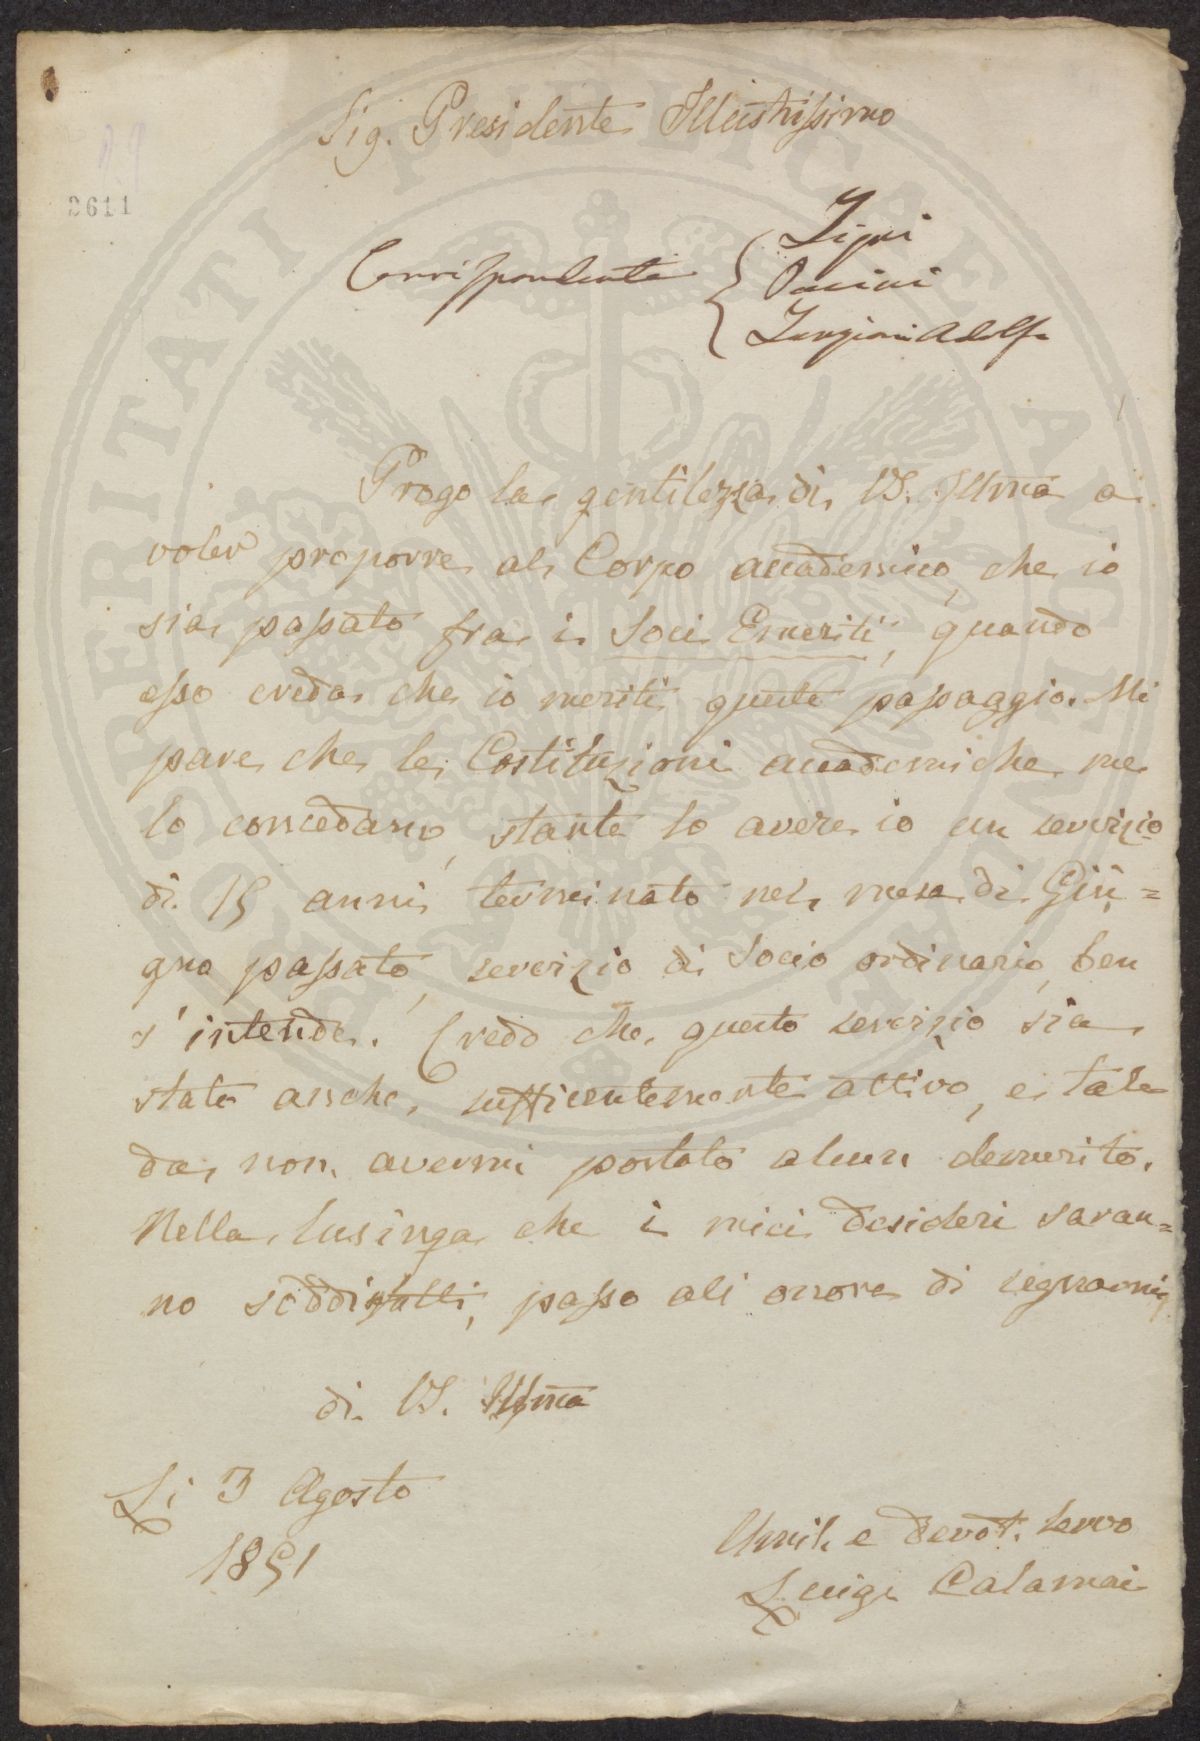 Sig. Presidente Illustrissimo
2611
Corrispondente
Zigni
Pacini
Targioni Adolfo
Prego la gentilezza di VS. Illma a
voler proporre al Corpo accademico, che io
sia passato fra i Soci Emeriti, quando
esso creda che io meriti questo passaggio. Mi
pare che le Costituzioni accademiche me
lo concedano, stante lo avere io un servizio
di 15 anni terminato nel mese di Giu=
gno passato, servizio di Socio ordinario, ben
s'intende. Credo che questo servizio sia
stato anche sufficientemente attivo, e tale
da non avermi portato alcun demerito.
Nella lusinga che i miei desideri saran=
no soddisfatti, passo all onore di segnarmi
di VS. Illma
Li 3 Agosto
1851
Umil. e devot. servo
Luigi Calamai
PROSPERITATI PVBLICAE AVGENDAE